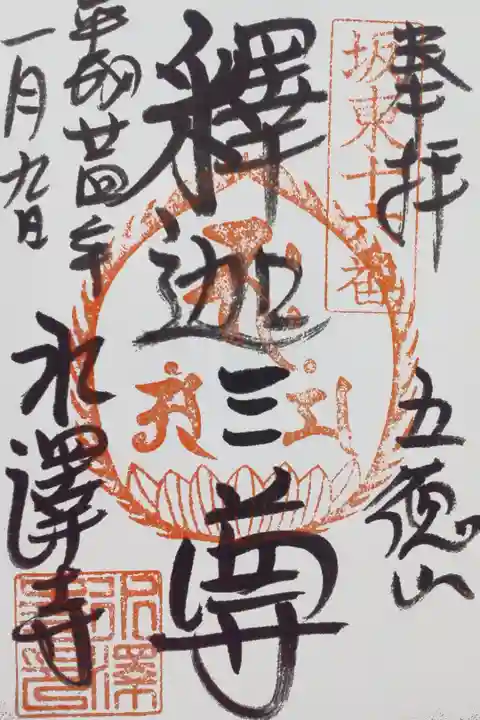 奉拝
坂東十六番
五徳山
釋迦三尊
平成廿四年
一月九日
水澤寺